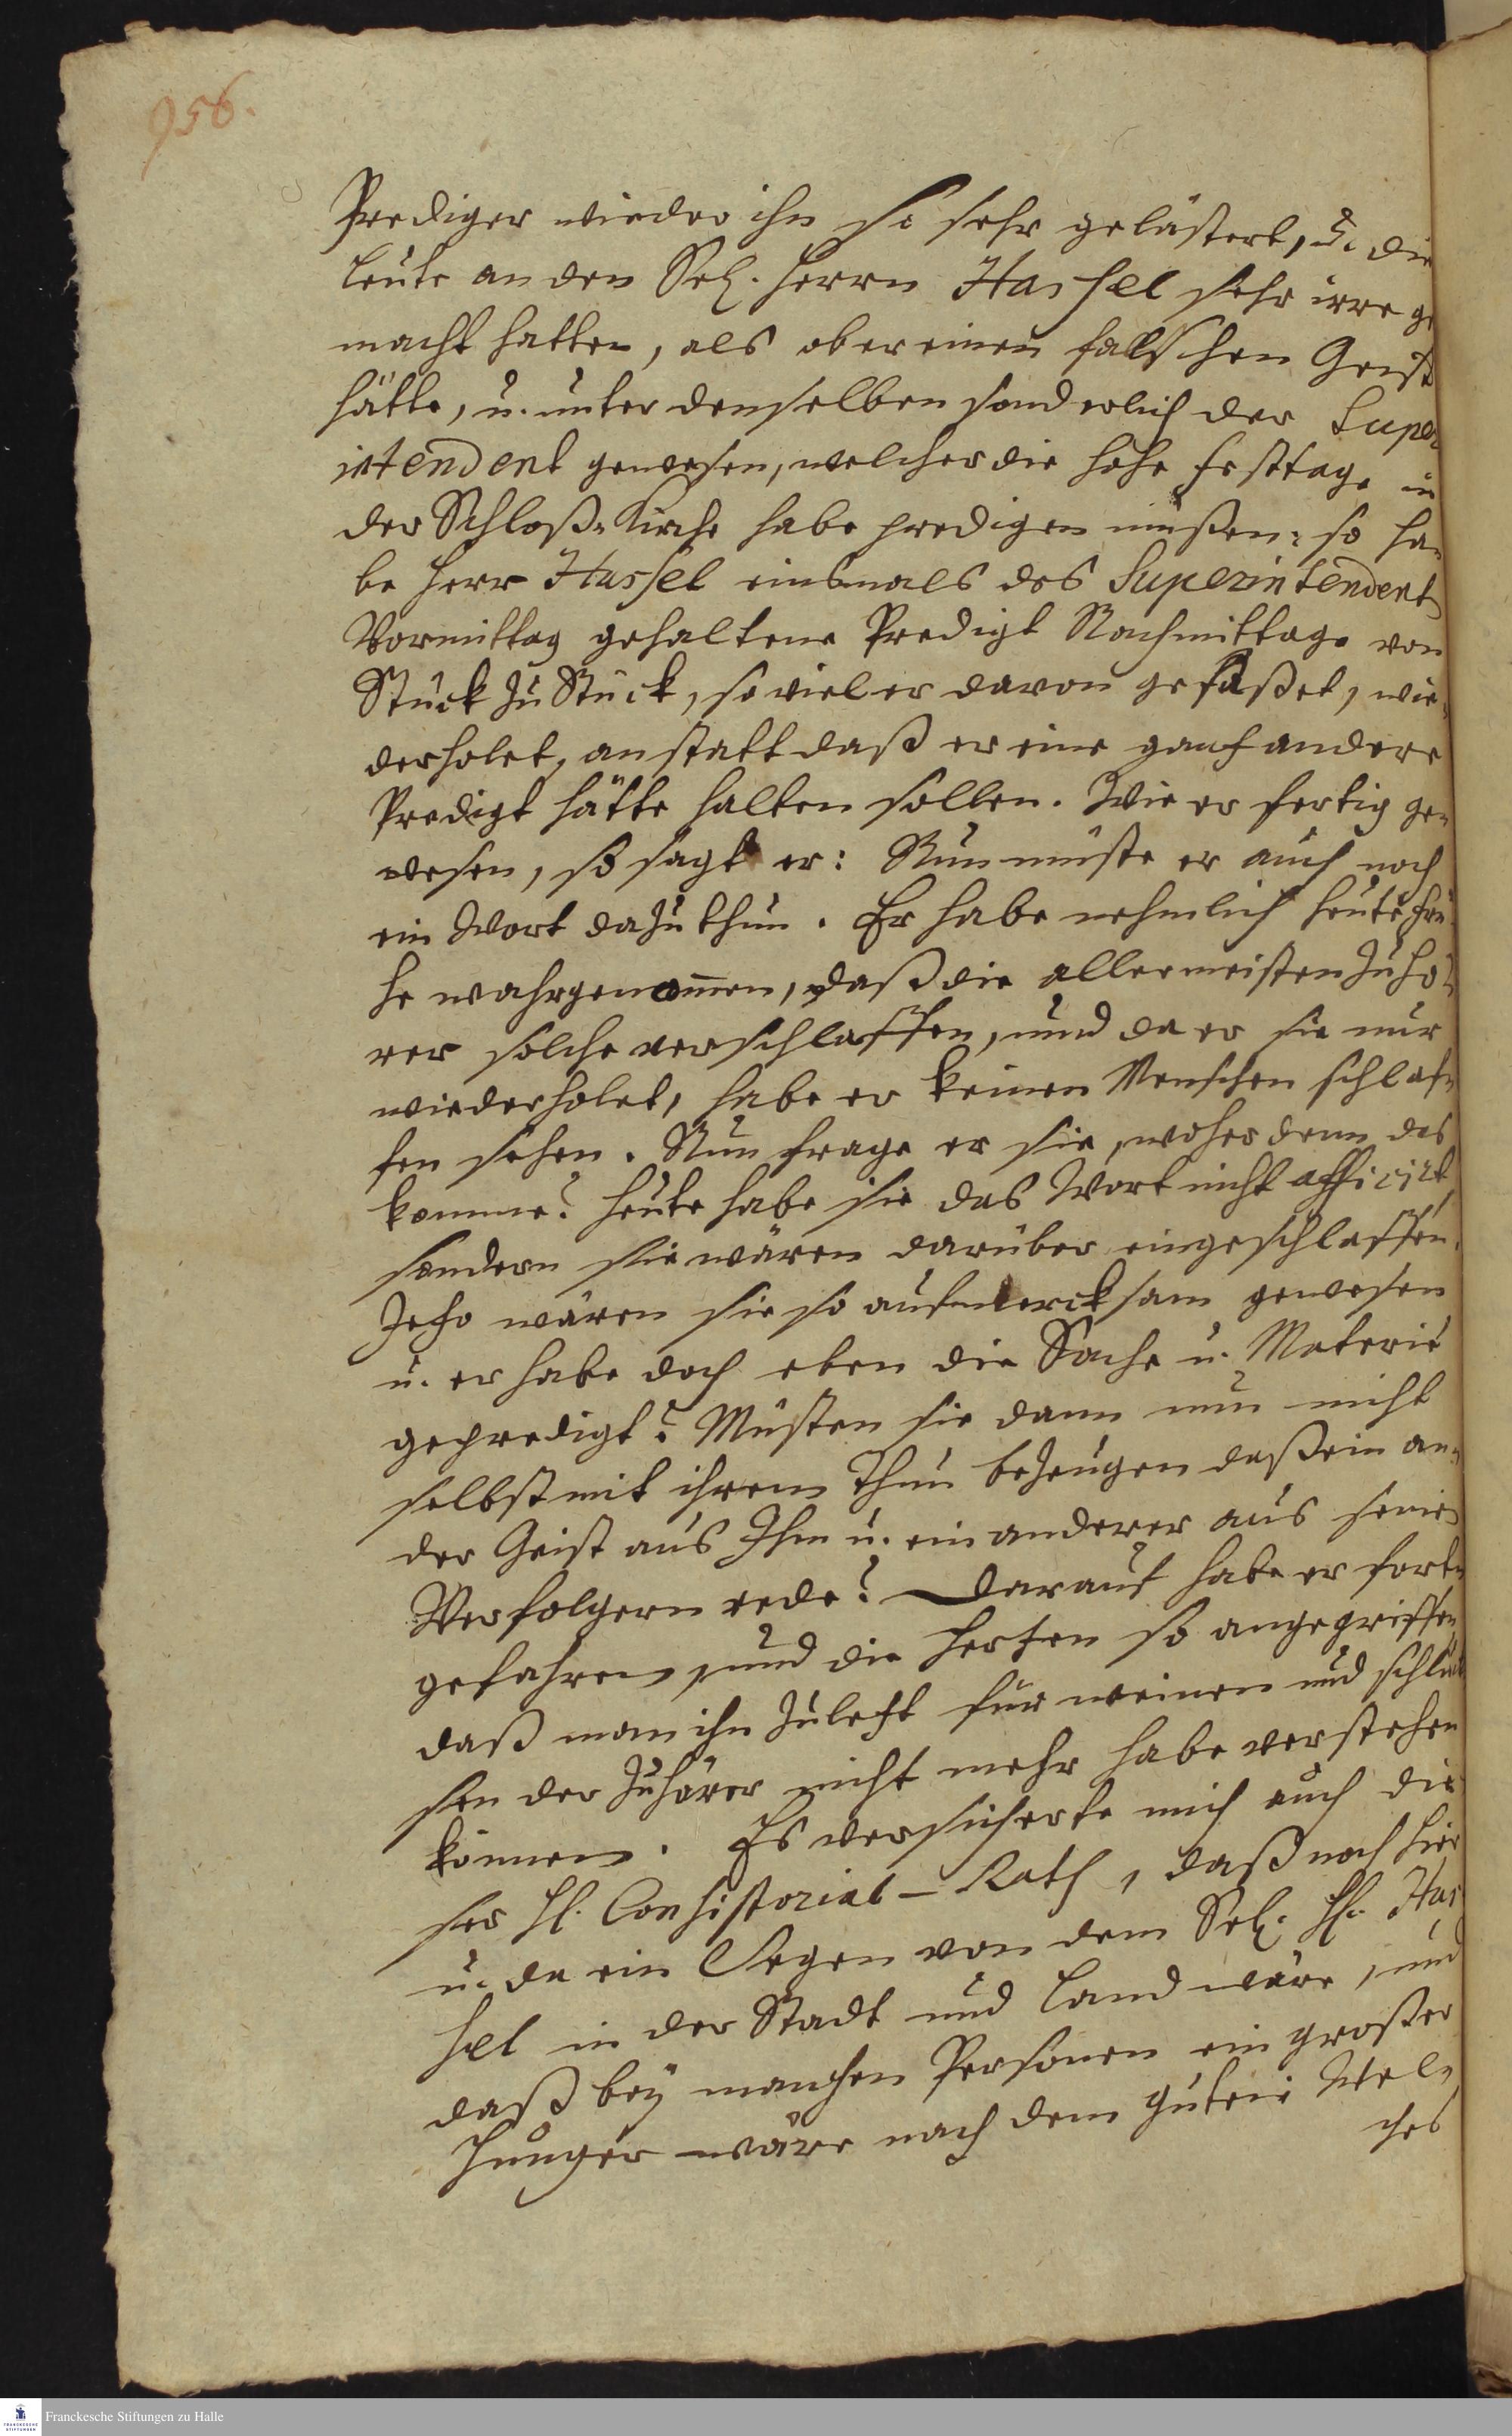 956.
Prediger wieder ihn so sehr gelästert, u. die
Leute an den Sel. Herrn Hassel sehr irre ge
macht hatten, als ob er einen falschen Geist
hätte, u. unter denselben sonderlich der Super
intendent gewesen, welcher die hohe Festtage in
der Schloß-Kirche habe predigen müßen: so ha-
be Herr Hassel einsmals des Superintendent
Vormittag gehaltene Predigt Nachmittage von
Stück zu Stück, so viel er davon gefaßet, wie-
derholet, anstatt daß er eine gantz andere
Predigt hätte halten sollen. Wie er fertig ge-
wesen, so sagt er: Nun müste er auch noch
ein Wort dazu thun. Er habe nehmlich heute frü-
he wahrgenom̅en, daß die allermeisten Zuhö-
rer solche verschlaffen, und da er sie nur
wiederholet, habe er keinen Menschen schlaf-
fen sehen. Nun frage er sie, woher denn das
komme? Heute habe sie das Wort nicht afficirt,
sondern sie wären darüber eingeschlaffen.
Jetzo wären sie so aufmercksam gewesen
u. er habe doch eben die Sache u. Materie
gepredigt? Müsten sie dann nun nicht
selbst mit ihrem Thun bezeugen daß ein an-
der Geist aus Ihm u. ein anderer aus seinen
Verfolgern rede? Darauf habe er fort-
gefahren, und die Hertzen so angegriffen,
daß man ihn zuletzt für weinen und schluch
sen der Zuhörer nicht mehr habe verstehen
können. Es versicherte mich auch die
ser H. Consistorial-Rath, daß noch hier
u. da ein Segen von dem Sel. H. Has
sel in der Stadt und Land wäre, und
daß bey manchen Personen ein großer
Hunger wäre nach dem guten Wel-
ches
Franckesche Stiftungen zu Halle